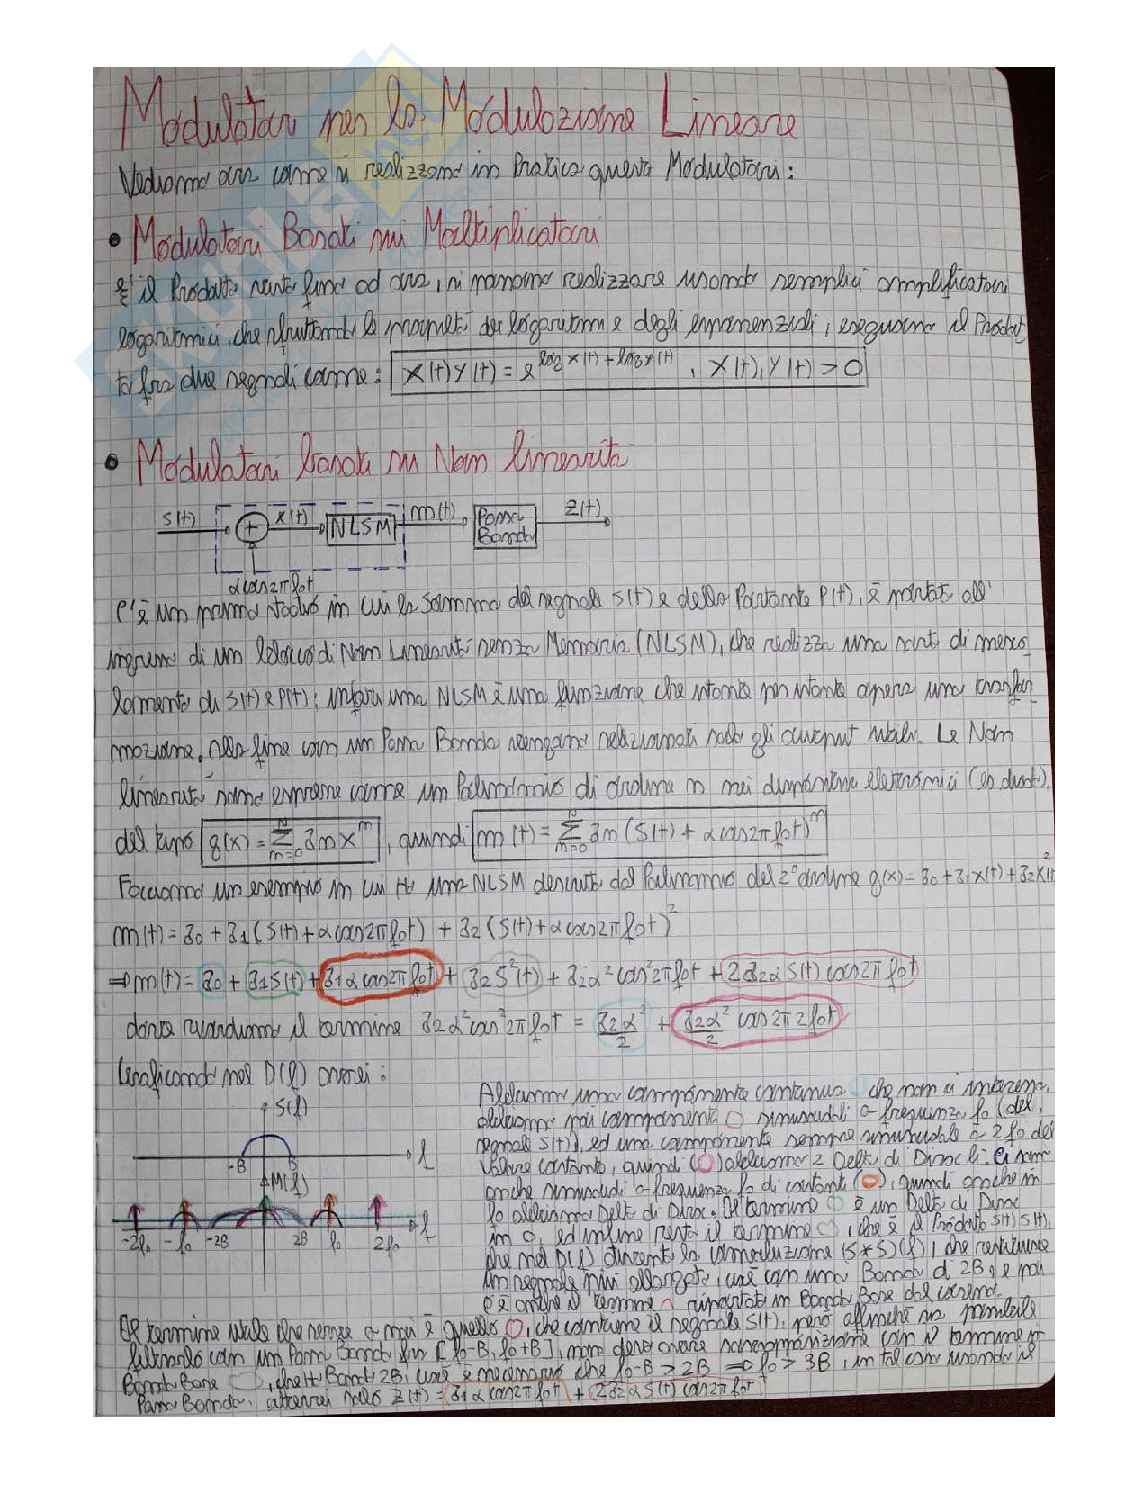 Modulatori per la Modulazione Lineare
Vediamo ora come si realizzano in Pratica questi Modulatori:
• Modulatori Basati sui Moltiplicatori
è il Prodotto visto fino ad ora, si possono realizzare usando semplici amplificatori
logaritmici, che sfruttando le proprietà dei logaritmi e degli esponenziali, eseguono il Prodot
to fra due segnali come: X(t)Y(t) = e^{log X(t) + log Y(t)}, X(t), Y(t) > 0
• Modulatori basati su Non linearità
s(t) + x(t) NLSM m(t) Passa Banda z(t)
α cos 2π f₀t
C'è un primo stadio in cui la somma del segnale s(t) e della Portante P(t), è portata all'
ingresso di un blocco di Non Linearità senza Memoria (NLSM), che realizza una sorta di mesco
lamento di s(t) e p(t); infatti una NLSM è una funzione che istante per istante opera una trasfor
mazione, nella fine con un Passa Banda vengono selezionati solo gli output utili. Le Non
linearità sono espresse come un Polinomio di ordine n nei dispositivi elettronici (es diodi),
del tipo g(x) = Σ_{n=0}^{N} an x^n, quindi m(t) = Σ_{n=0}^{N} an (s(t) + α cos 2π f₀t)^n
Facciamo un esempio in cui ho una NLSM descritta dal Polinomio del 2° ordine g(x) = a₀ + a₁x(t) + a₂x(t)²
m(t) = a₀ + a₁(s(t) + α cos 2π f₀t) + a₂(s(t) + α cos 2π f₀t)²
⇒ m(t) = a₀ + a₁s(t) + a₁α cos 2π f₀t + a₂s²(t) + a₂α² cos² 2π f₀t + 2a₂α s(t) cos 2π f₀t
dove ricordiamo il termine a₂α² cos² 2π f₀t = a₂α²/2 + a₂α²/2 cos 2π 2f₀t
Graficando nel D(f) avrei:
S(f)
-B B f
M(f)
-2f₀ -f₀ -2B 2B f₀ 2f₀ f
Abbiamo una componente continua che non ci interessa,
abbiamo poi componenti sinusoidali a frequenza f₀ (del
segnale s(t)), ed una componente sempre sinusoidale a 2f₀ del
valore costante, quindi ( ) abbiamo 2 Delta di Dirac lì. Ci sono
anche sinusoidi a frequenza f₀ di costante ( ), quindi anche in
f₀ abbiamo Delta di Dirac. Il termine è un Delta di Dirac
in 0, ed infine resta il termine , che è il Prodotto s(t) s(t),
che nel D(f) diventa la convoluzione (S * S)(f), che restituisce
un segnale più allargato, cioè con una Banda di 2B, e poi
c'è anche il termine riportato in Banda Base del
Il termine utile che serve a noi è quello , che contiene il segnale s(t), però affinché sia possibile
filtrarlo con un Passa Banda fra [f₀-B, f₀+B], non deve avere sovrapposizione con il termine in
Banda Base , che ha Banda 2B, cioè è necessario che f₀-B > 2B ⇒ f₀ > 3B, in tal caso usando il
Passa Banda, otterrei solo z(t) = a₁α cos 2π f₀t + 2a₂α s(t) cos 2π f₀t